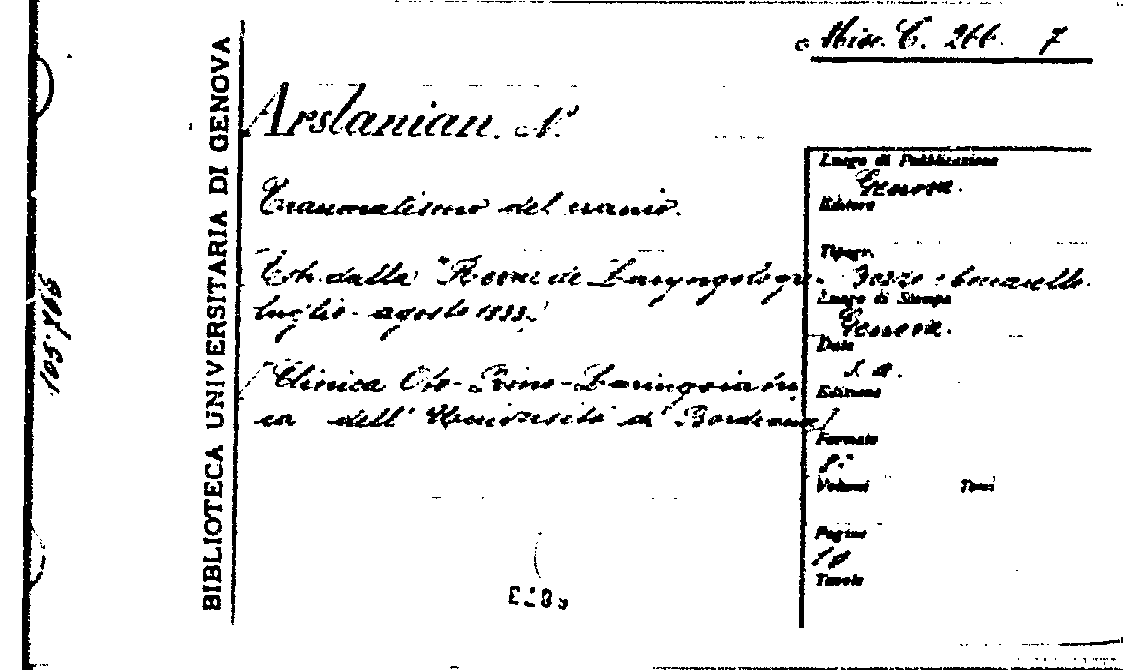 Misc. C. 266. 7
BIBLIOTECA UNIVERSITARIA DI GENOVA
Arslanian. N.
Traumatismo del cranio.
Estr. dalla "Revue de Laryngologie
luglio - agosto 1933."
(Clinica Oto-Rino-Laringoiatri
ca dell' Università di Bordeaux)
Luogo di Pubblicazione
Genova.
Editore
Tipogr.
Luogo di Stampa
Genova.
Data
s. a.
Edizione
Formato
8°
Volumi Tomi
Pagine
10
Tavole